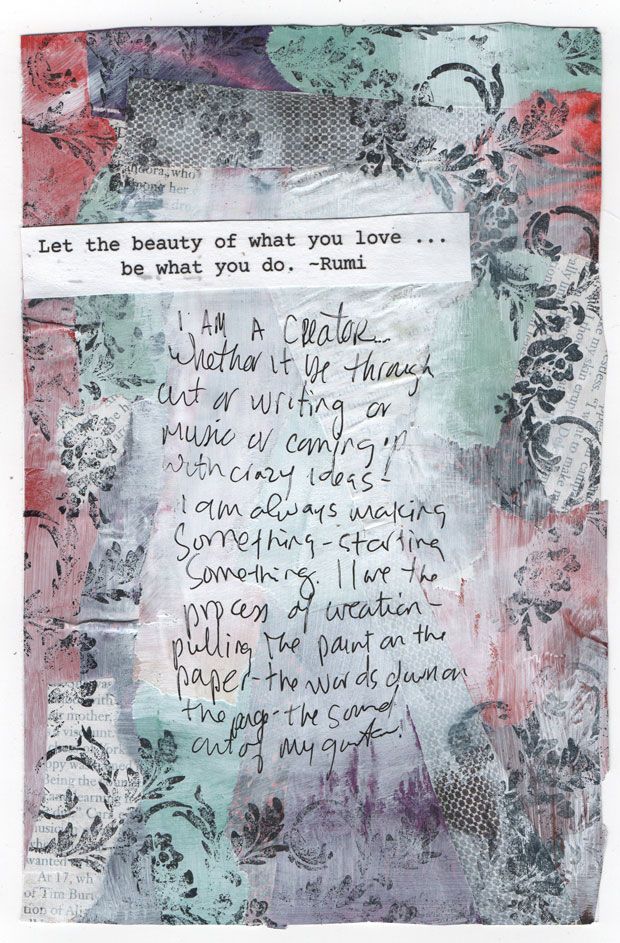 andora, who
among her
Let the beauty of what you love ...
be what you do. ~Rumi
I AM A CREATOR...
whether it be through
art or writing or
music or coming up
with crazy ideas-
I am always making
Something-starting
Something. I love the
process of creation-
pulling the paint on the
paper-the words down on
the page-the sound
out of my guitar!
mother,
Being the
learning
music
wanted
At 17, wh
of Tim Burt
tion of Ali